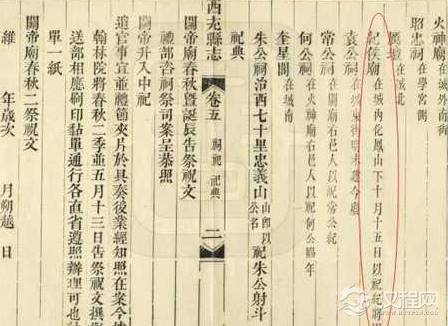 火神廟在城外南街
昭忠祠在學宮側
厲壇在城北
紀侯廟在城內化鳳山下十月十五日以祀紀將
袁公祠在城東街
常公祠在關廟右邑人以祀常公紀
何公祠在火神廟右邑人以祀何公鶴年
奎星閣在城南
朱公祠治西七十里忠義山山郎以祀朱公射斗
公名
祀典
西充縣志
卷五
祠祀
祀典
二
關帝廟春秋曁誕辰告祭祝文
禮部咨祠祭司案呈恭照
關帝升入中祀
遣官事宜並禮節夾片於具奏後業經知照在案今
翰林院將春秋二季並五月十三日告祭祝文撰
送部相應刷印黏單通行各直省遵照辦理可也
單一紙
關帝廟春秋二祭祝文
維
年歲次
月朔越
日
汉程网